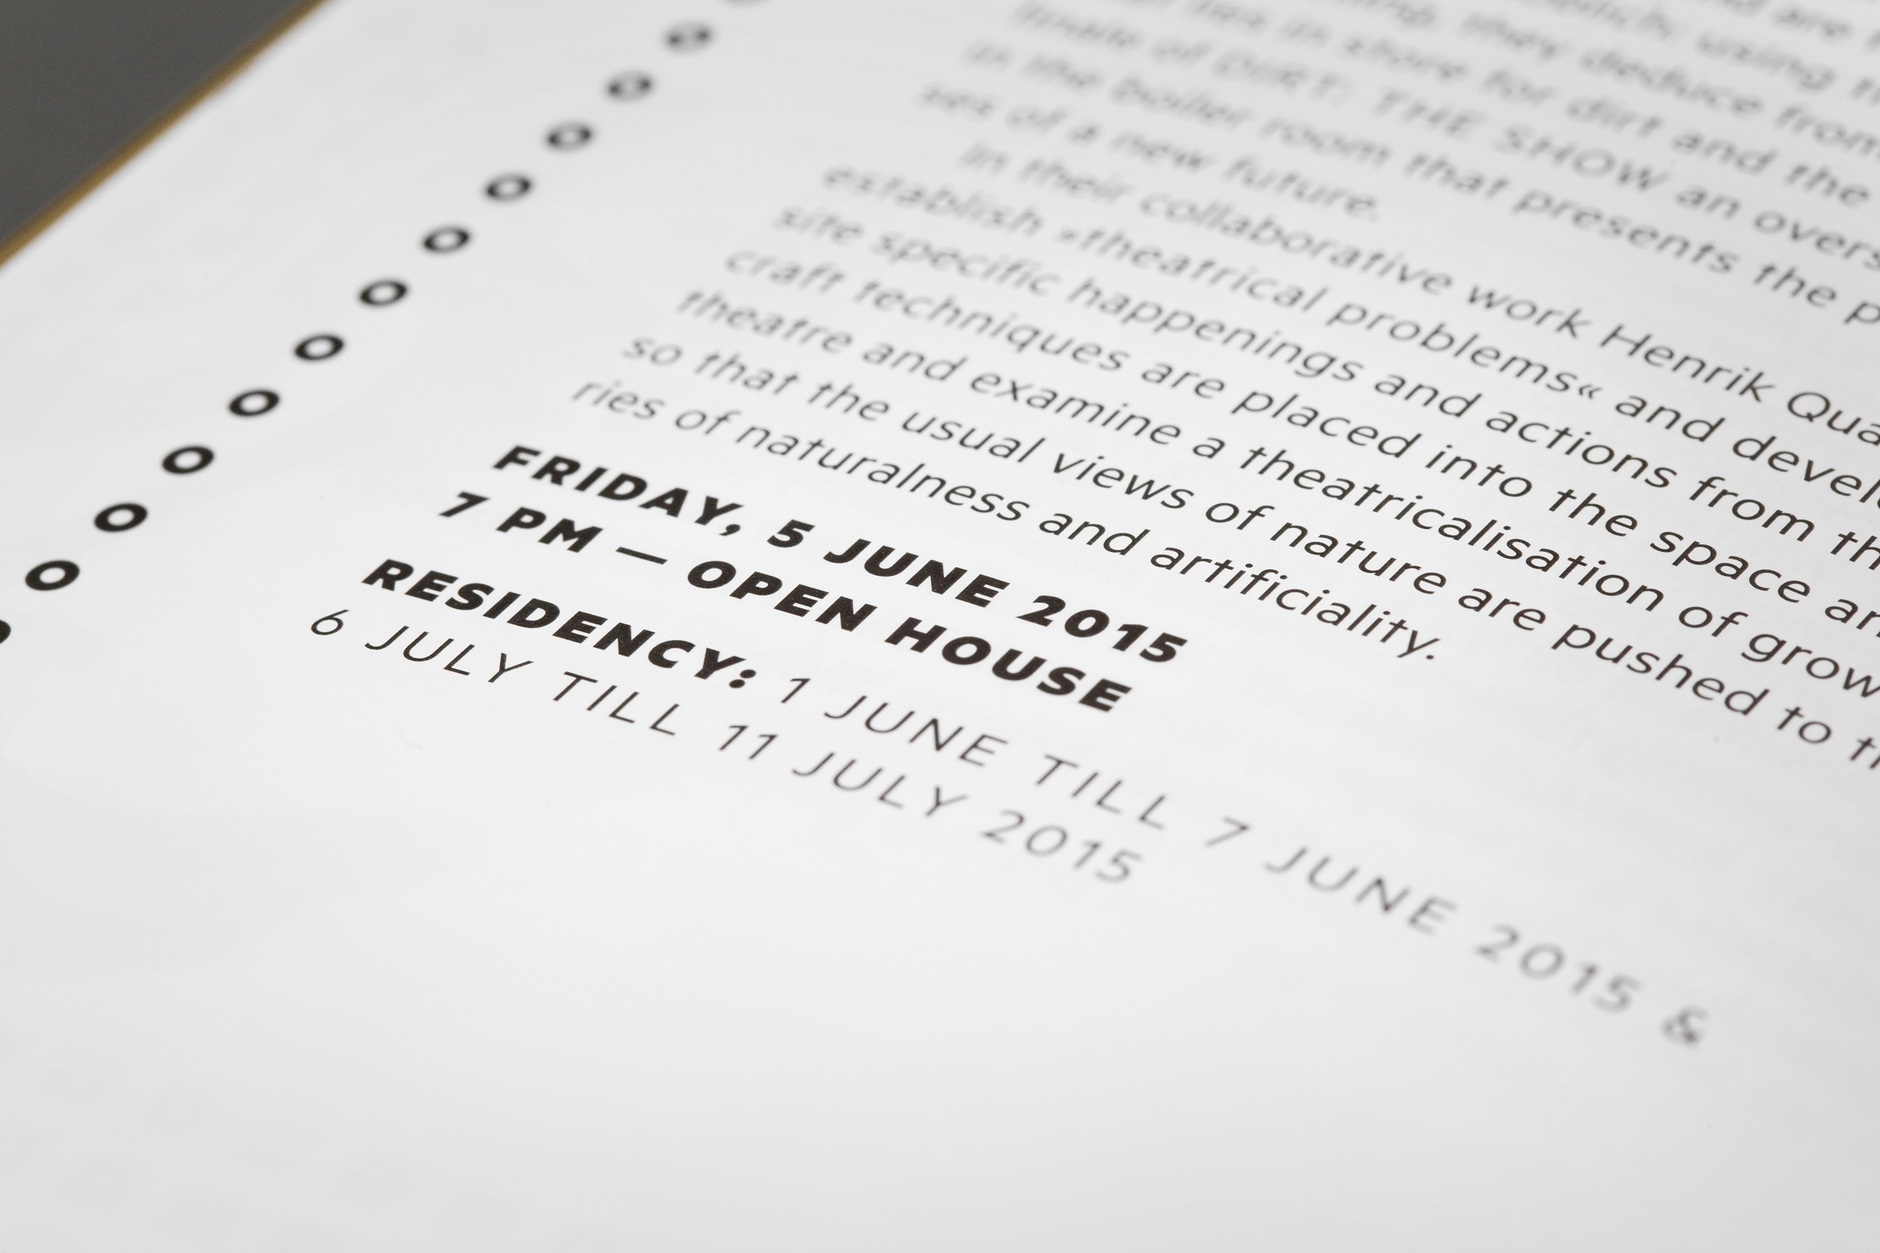 are
using
they deduce from
lies in store for dirt and the
of DIRT: THE SHOW an
in the boiler room that presents the
ses of a new future.
In their collaborative work Henrik Qua
establish »theatrical problems« and devel
site specific happenings and actions from th
craft techniques are placed into the space an
theatre and examine a theatricalisation of grow
so that the usual views of nature are pushed to th
ries of naturalness and artificiality.
FRIDAY, 5 JUNE 2015
7 PM — OPEN HOUSE
RESIDENCY: 1 JUNE TILL 7 JUNE 2015 &
6 JULY TILL 11 JULY 2015